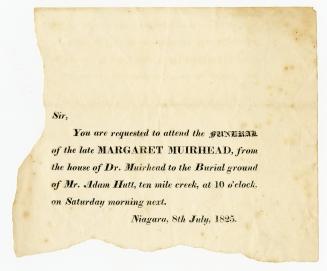 Sir,
You are requested to attend the FUNERAL
of the late MARGARET MUIRHEAD, from
the house of Dr. Muirhead to the Burial ground
of Mr. Adam Hutt, ten mile creek, at 10 o'clock.
on Saturday morning next.
Niagara, 8th July, 1825.